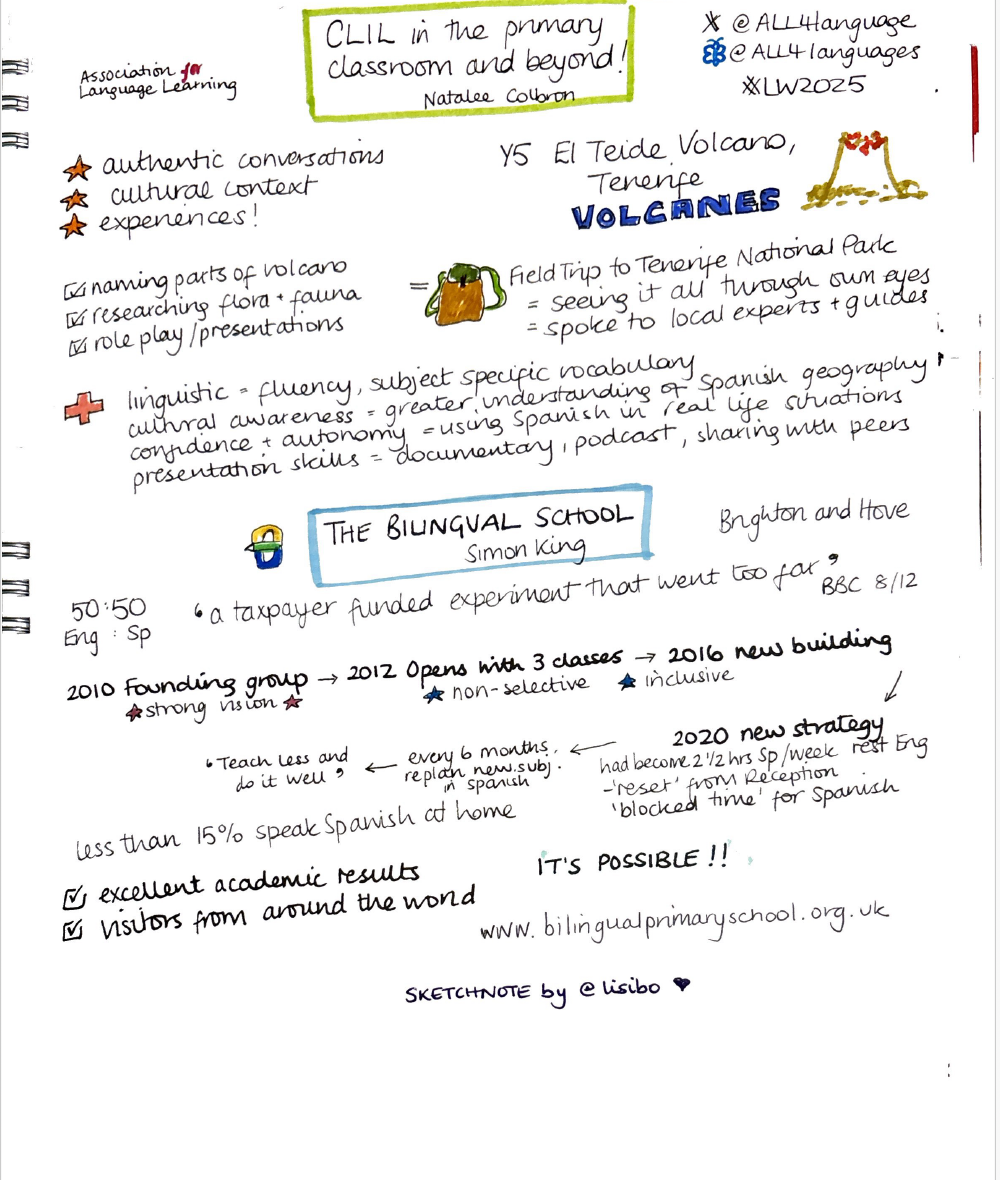 CLIL in the primary
classroom and beyond!
Natalee Colbron
Association for
Language Learning
X @ALL4language
@ALL4languages
#LW2025
authentic conversations
cultural context
experiences!
Y5 El Teide Volcano,
Tenerife
VOLCANES
naming parts of volcano
researching flora + fauna
role play/presentations
= Field Trip to Tenerife National Park
= seeing it all through own eyes
= spoke to local experts + guides
linguistic = fluency, subject specific vocabulary
cultural awareness = greater understanding of Spanish geography
confidence + autonomy = using Spanish in real life situations
presentation skills = documentary, podcast, sharing with peers
THE BILINGUAL SCHOOL
Simon King
Brighton and Hove
50:50
Eng : Sp
'a taxpayer funded experiment that went too far'
BBC 8/12
2010 Founding group → 2012 Opens with 3 classes → 2016 new building
strong vision
non-selective
inclusive
2020 new strategy
had become 2 1/2 hrs Sp/week rest Eng
-'reset' from Reception
'blocked time' for Spanish
← every 6 months,
replan new subj.
in spanish
← 'Teach less and
do it well'
less than 15% speak Spanish at home
excellent academic results
visitors from around the world
IT'S POSSIBLE!!
www.bilingualprimaryschool.org.uk
SKETCHNOTE by @lisibo